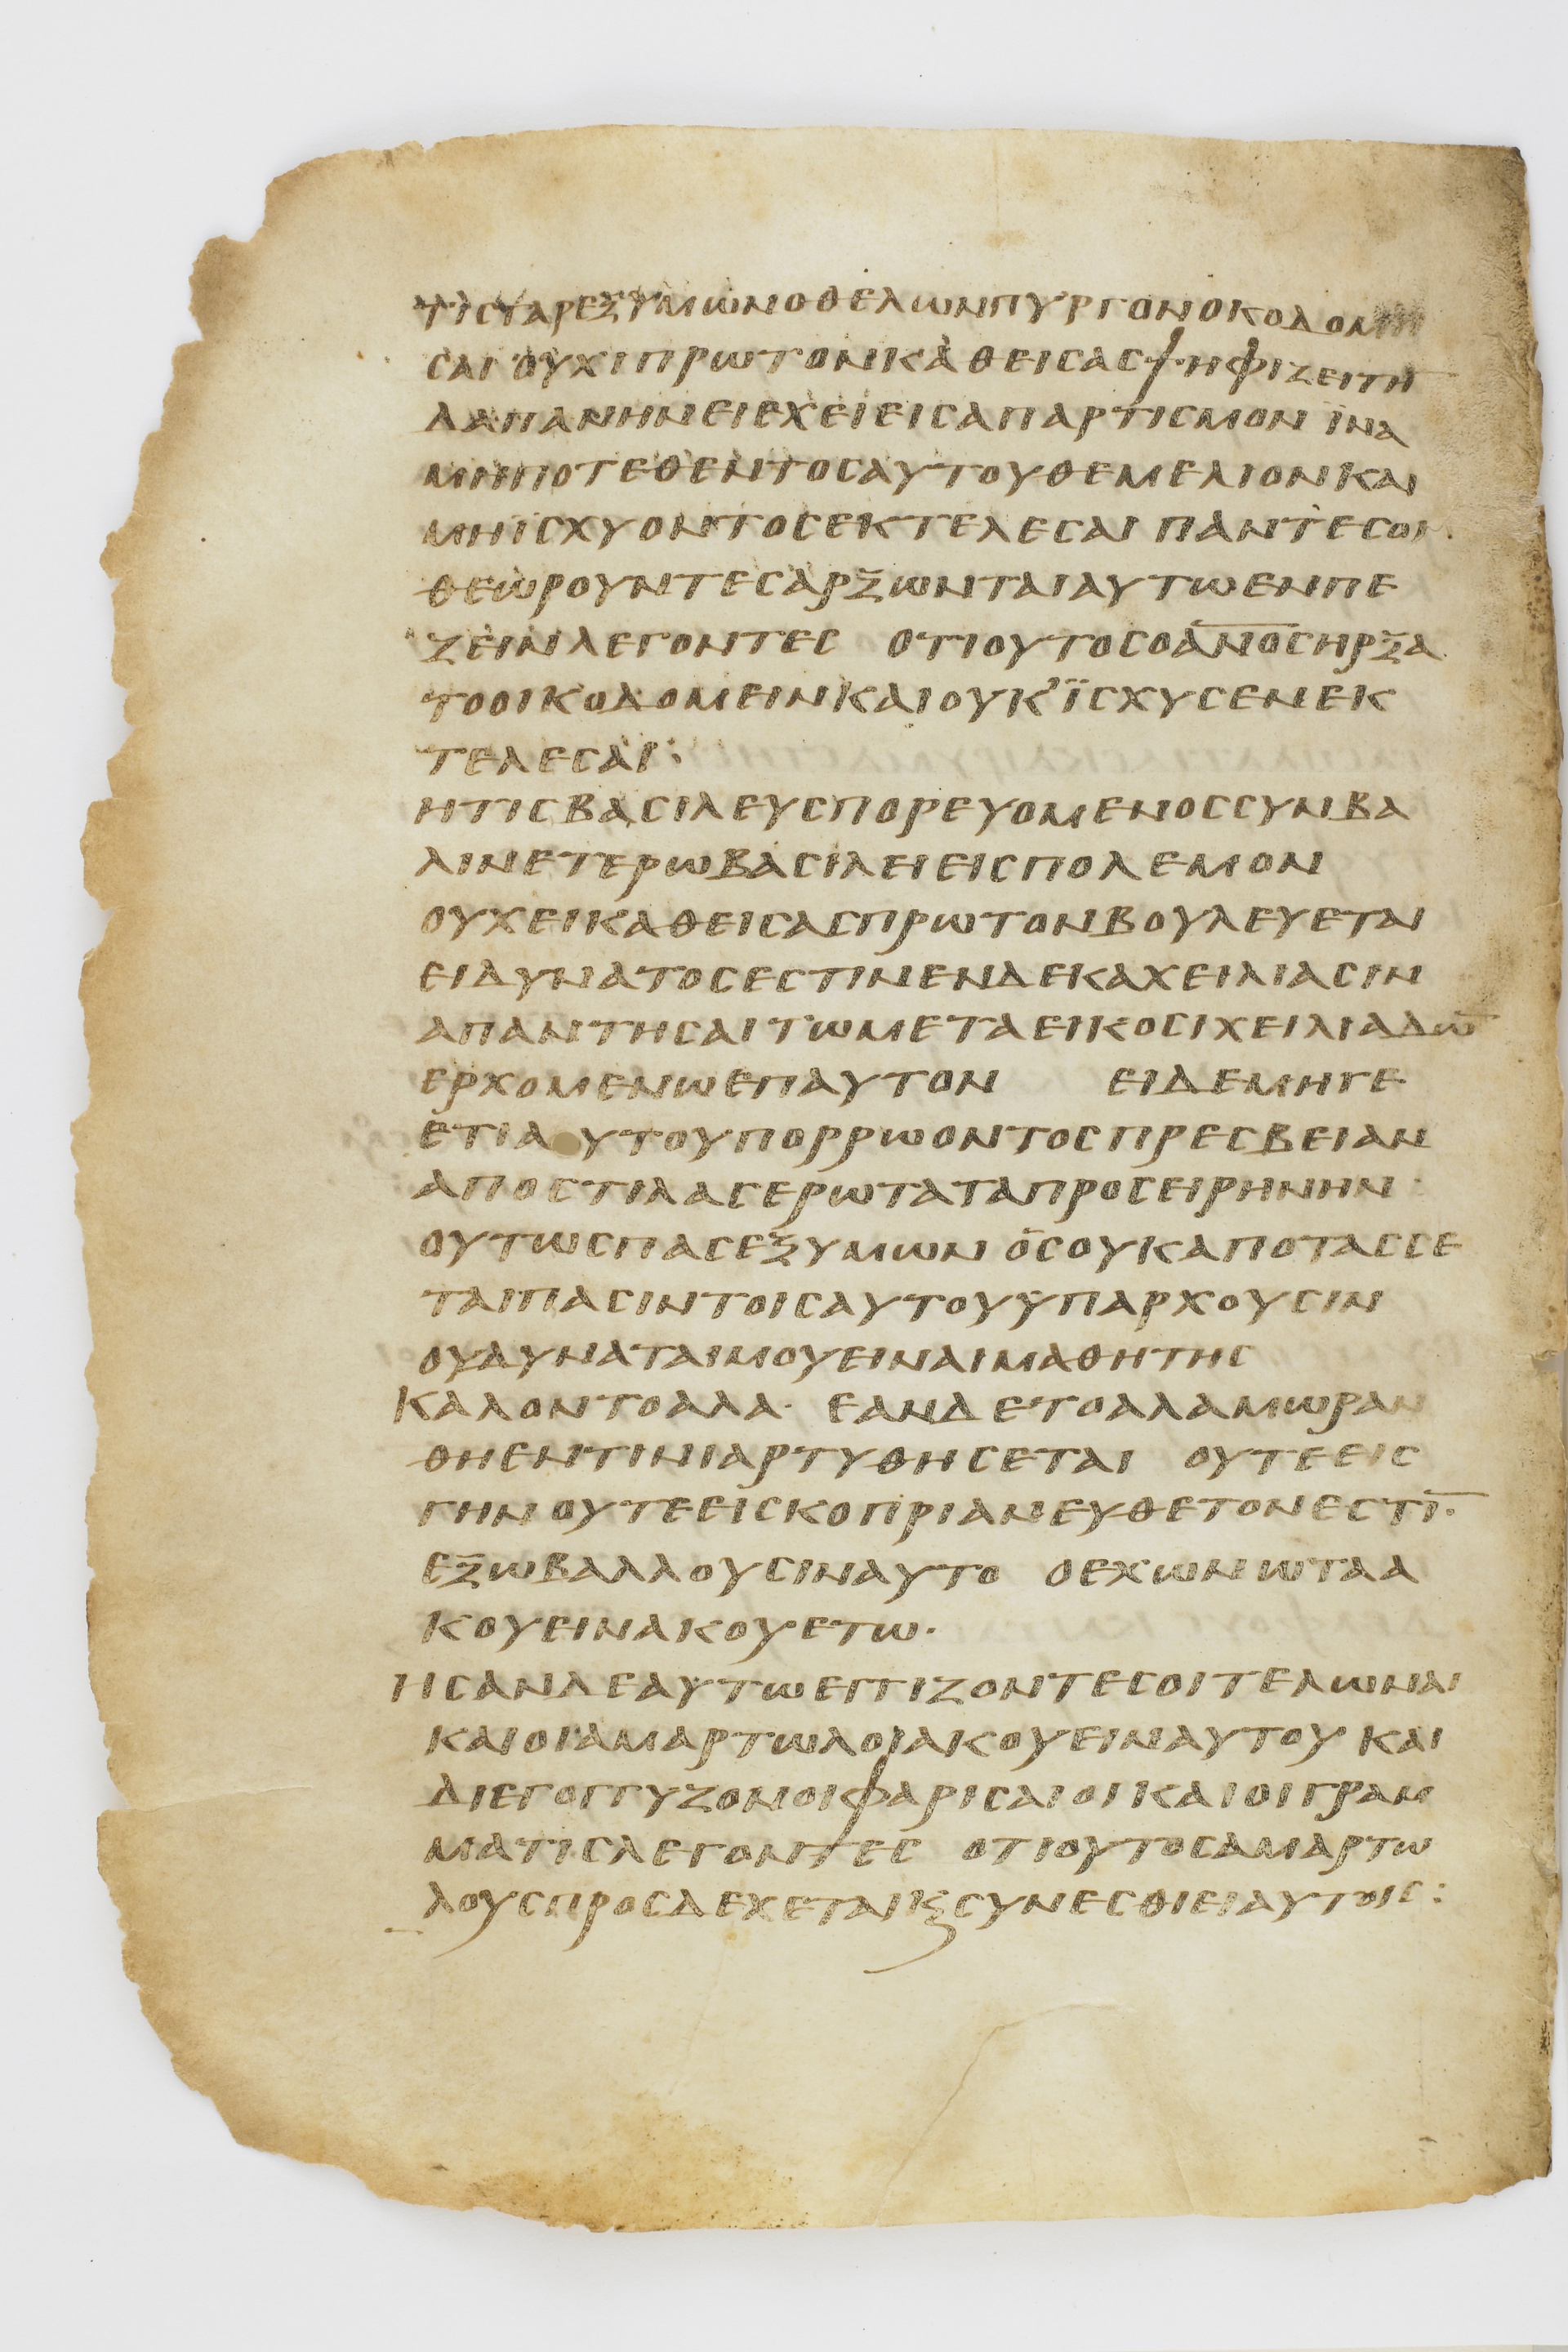 ΤΙCΓΑΡΕΞΥΜΩΝΟΘΕΛΩΝΠΥΡΓΟΝΟΚΟΔΟΜΗ
CΑΙ ΟΥΧΙΠΡΩΤΟΝΚΑΘΕΙCΑCΨΗΦΙΖΕΙΤΗ̅
ΔΑΠΑΝΗΝΕΙΕΧΕΙΕΙCΑΠΑΡΤΙCΜΟΝ ΪΝΑ
ΜΗΠΟΤΕΘΕΝΤΟCΑΥΤΟΥΘΕΜΕΛΙΟΝΚΑΙ
ΜΗΪCΧΥΟΝΤΟCΕΚΤΕΛΕCΑΙ ΠΑΝΤΕCΟΙ
ΘΕΩΡΟΥΝΤΕCΑΡΞΩΝΤΑΙΑΥΤΩΕΝΠΕ
ΖΕΙΝΛΕΓΟΝΤΕC ΟΤΙΟΥΤΟCΟΑ̅Ν̅Ο̅CΗΡΞΑ
ΤΟΟΙΚΟΔΟΜΕΙΝΚΑΙΟΥΚ'ΪCΧΥCΕΝΕΚ
ΤΕΛΕCΑΙ:
ΗΤΙCΒΑCΙΛΕΥCΠΟΡΕΥΟΜΕΝΟCCΥΝΒΑ
ΛΙΝΕΤΕΡΩΒΑCΙΛΕΙΕΙCΠΟΛΕΜΟΝ
ΟΥΧΕΙΚΑΘΕΙCΑCΠΡΩΤΟΝΒΟΥΛΕΥΕΤΑΙ
ΕΙΔΥΝΑΤΟCΕCΤΙΝΕΝΔΕΚΑΧΕΙΛΙΑCΙΝ
ΑΠΑΝΤΗCΑΙΤΩΜΕΤΑΕΙΚΟCΙΧΕΙΛΙΑΔΩ̅
ΕΡΧΟΜΕΝΩΕΠΑΥΤΟΝ ΕΙΔΕΜΗΓΕ
ΕΤΙΑΥΤΟΥΠΟΡΡΩΟΝΤΟCΠΡΕCΒΕΙΑΝ
ΑΠΟCΤΙΛΑCΕΡΩΤΑΤΑΠΡΟCΕΙΡΗΝΗΝ·
ΟΥΤΩCΠΑCΕΞΥΜΩΝ ΟCΟΥΚΑΠΟΤΑCCΕ
ΤΑΙΠΑCΙΝΤΟΙCΑΥΤΟΥΥΠΑΡΧΟΥCΙΝ
ΟΥΔΥΝΑΤΑΙΜΟΥΕΙΝΑΙΜΑΘΗΤΗC
ΚΑΛΟΝΤΟΑΛΑ· ΕΑΝΔΕΤΟΑΛΑΜΩΡΑΝ
ΘΗΕΝΤΙΝΙΑΡΤΥΘΗCΕΤΑΙ ΟΥΤΕΕΙC
ΓΗΝΟΥΤΕΕΙCΚΟΠΡΙΑΝΕΥΘΕΤΟΝΕCΤΙ̅·
ΕΞΩΒΑΛΛΟΥCΙΝΑΥΤΟ ΟΕΧΩΝΩΤΑΑ
ΚΟΥΕΙΝΑΚΟΥΕΤΩ·
ΗCΑΝΔΕΑΥΤΩΕΓΓΙΖΟΝΤΕCΟΙΤΕΛΩΝΑΙ
ΚΑΙΟΙΑΜΑΡΤΩΛΟΙΑΚΟΥΕΙΝΑΥΤΟΥ ΚΑΙ
ΔΙΕΓΟΓΓΥΖΟΝΟΙΦΑΡΙCΑΙΟΙΚΑΙΟΙΓΡΑΜ
ΜΑΤΙCΛΕΓΟΝΤΕC ΟΤΙΟΥΤΟCΑΜΑΡΤΩ
ΛΟΥCΠΡΟCΔΕΧΕΤΑΙΚϚCΥΝΕCΘΙΕΙΑΥΤΟΙC: